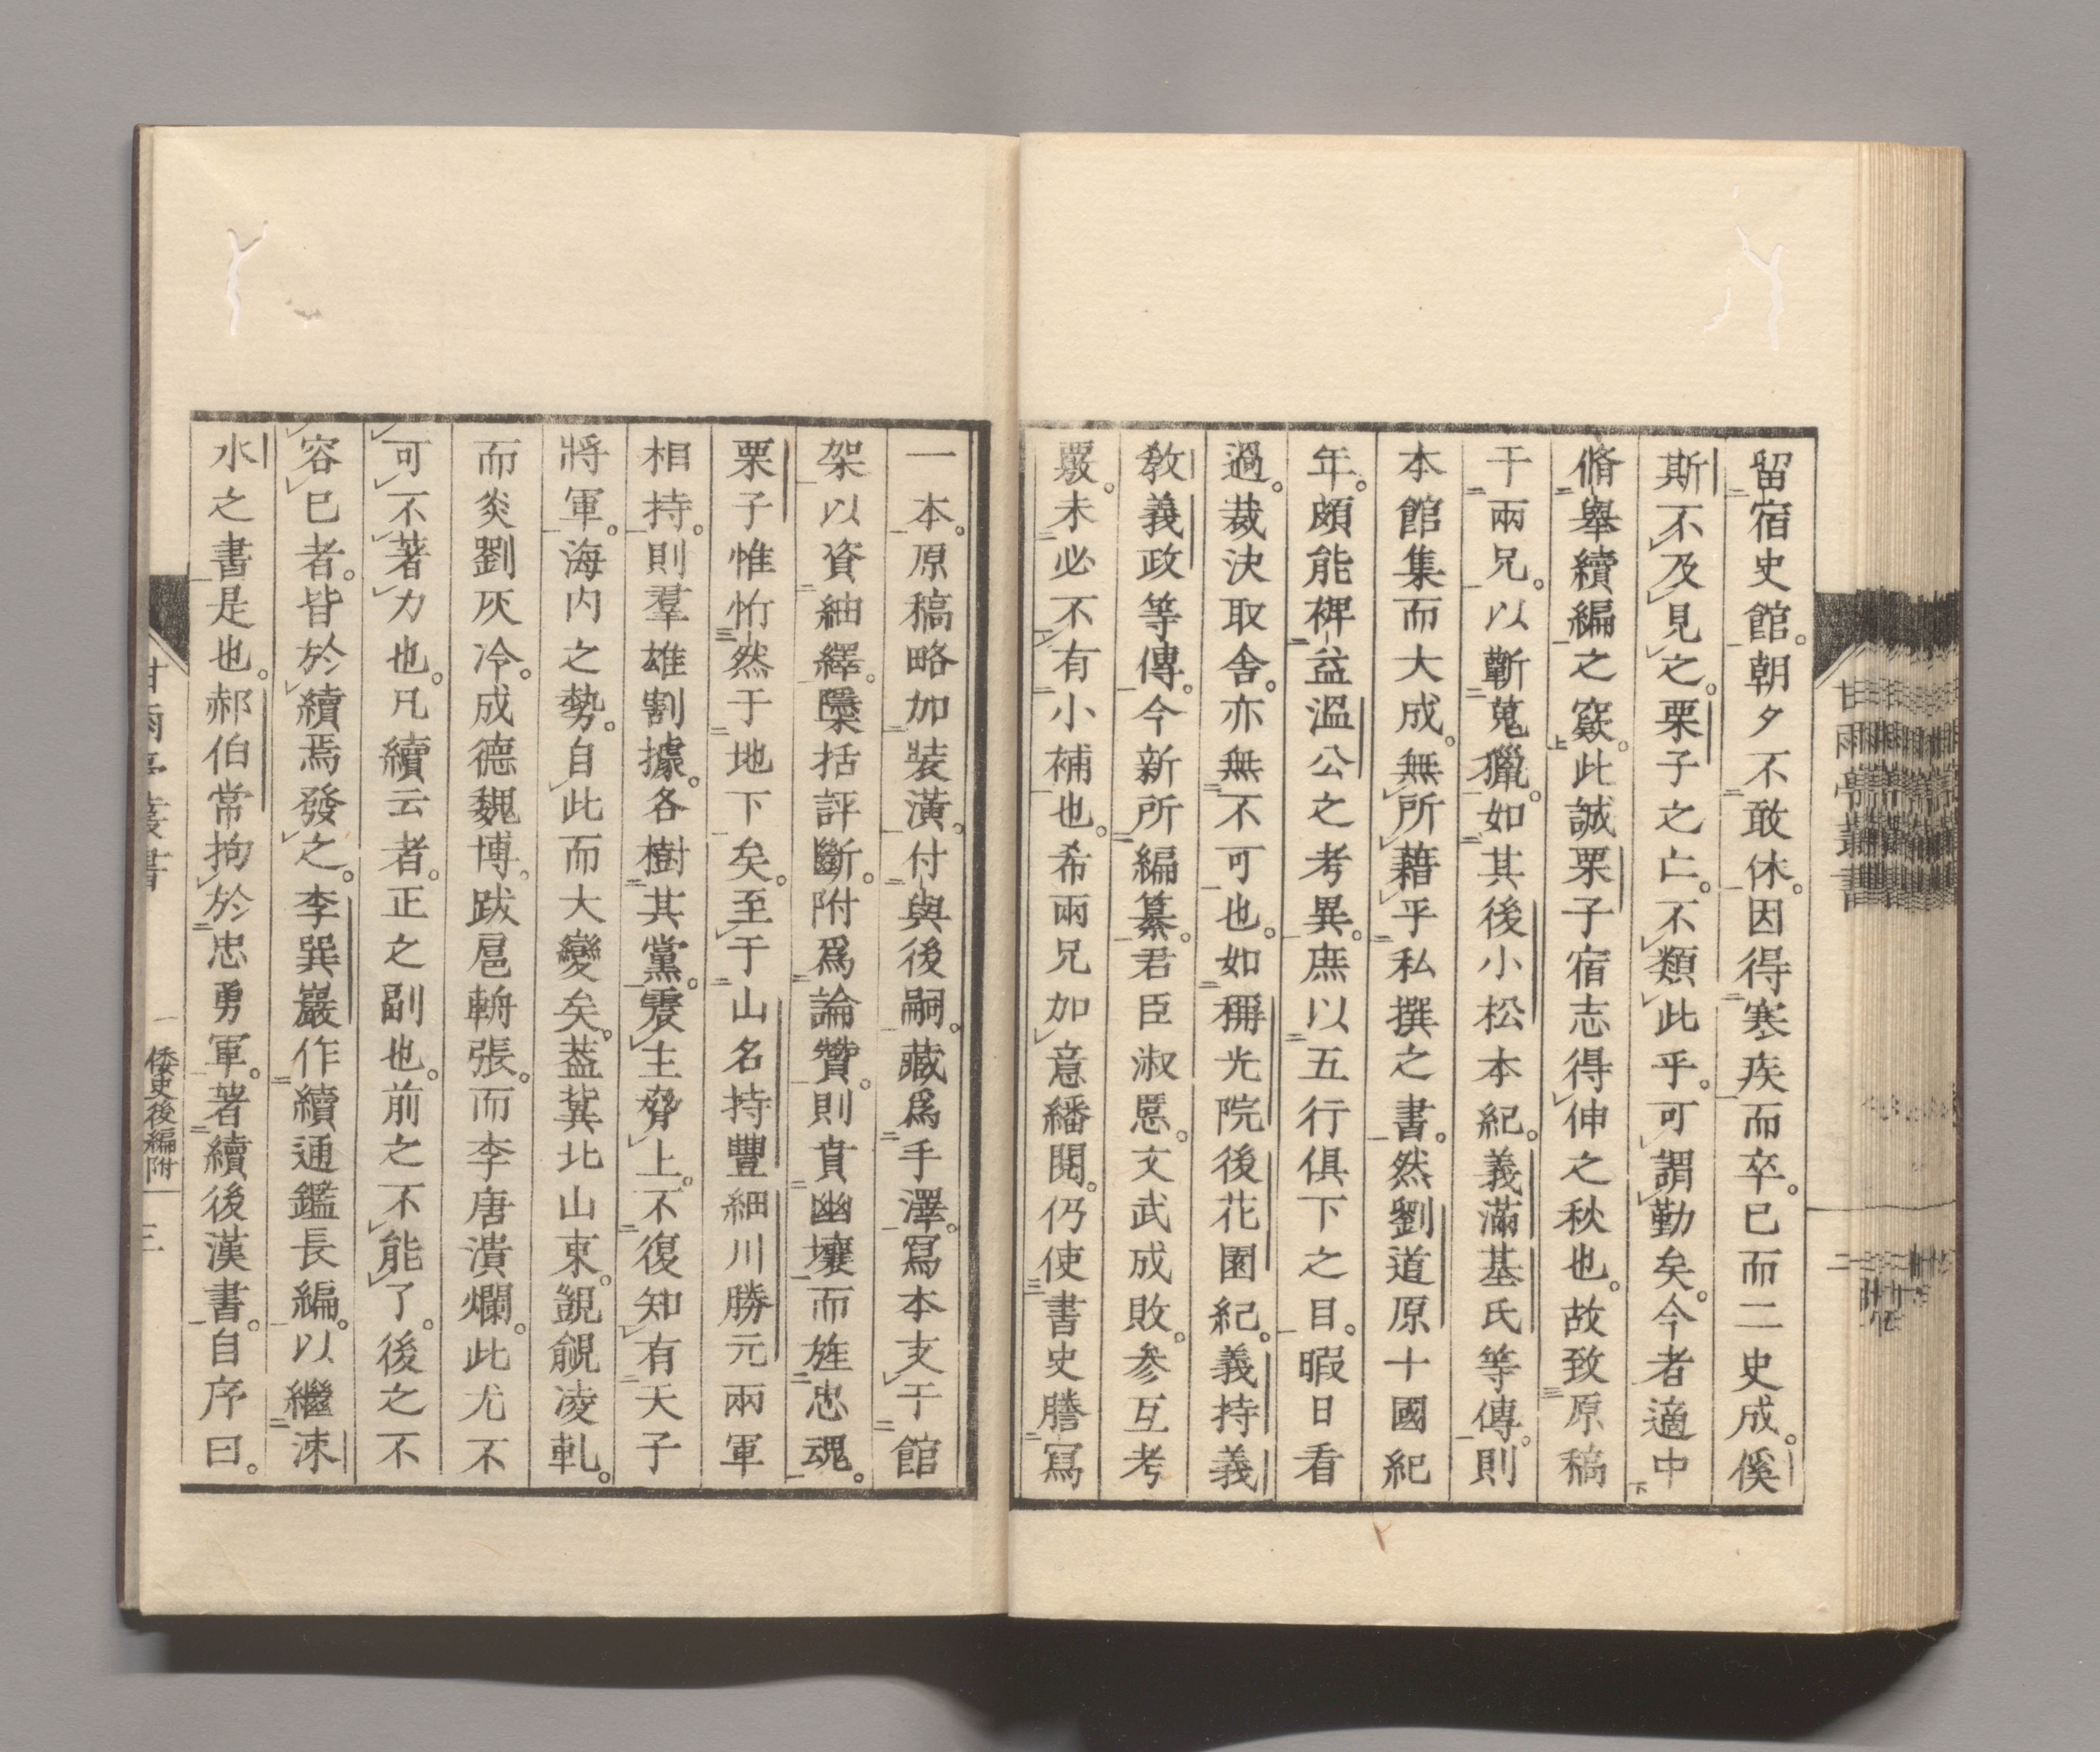 留宿史館。朝夕不敢休。因得寒疾而卒。已而二史成。僕
斯不及見之。栗子之亡。不類此乎。可謂勤矣。今者適中
脩舉續編之窾。此誠栗子宿志得伸之秋也。故致原稿
于兩兄。以蘄蒐獵。如其後小松本紀。義滿基氏等傳。則
本館集而大成。無所藉乎私撰之書。然劉道原十國紀
年。頗能裨益溫公之考異。庶以五行俱下之目。暇日看
過。裁決取舍。亦無不可也。如稱光院後花園紀。義持義
教義政等傳。今新所編纂。君臣淑慝。文武成敗。參互考
覈。未必不有小補也。希兩兄加意繙閱。仍使書史謄寫
一本。原稿略加裝潢。付與後嗣。藏爲手澤。寫本支于館
架。以資紬繹。檃括評斷。附爲論贊。則賁幽壤而旌忠魂。
栗子惟忻然于地下矣。至于山名持豐細川勝元兩軍
相持。則羣雄割據。各樹其黨。震主脅上。不復知有天子
將軍。海内之勢。自此而大變矣。葢冀北山東。覬覦凌軋。
而炎劉灰冷。成德魏博。跋扈輈張。而李唐潰爛。此尤不
可不著力也。凡續云者。正之副也。前之不能了。後之不
容已者。皆於續焉發之。李巽巖作續通鑑長編。以繼涑
水之書是也。郝伯常拘於忠勇軍。著續後漢書。自序曰。
甘雨亭叢書
二
甘雨亭叢書
倭史後編附
三